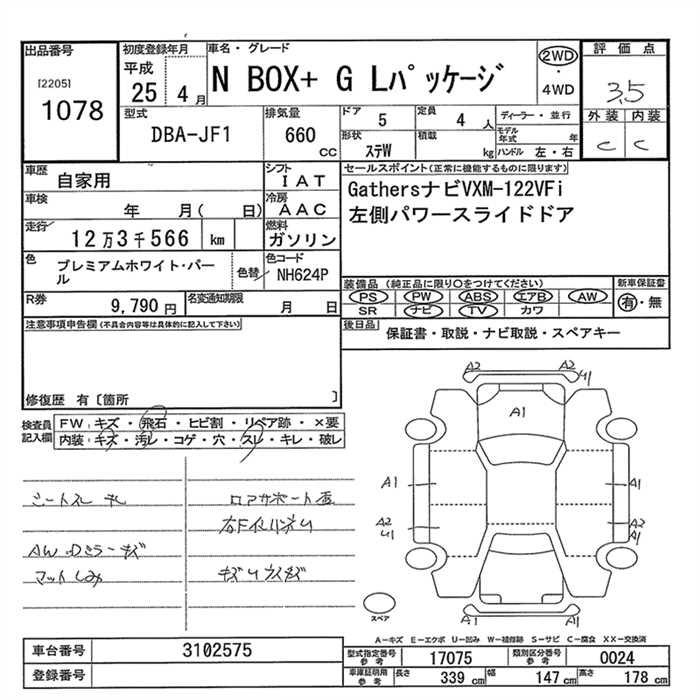 出品番号
[2205]
1078
初度登録年月
平成
25 4 月
車名・グレード
N BOX+ G Lパッケージ
2WD
・
4WD
評価点
3.5
外装 内装
C C
型式
DBA-JF1
排気量
660 CC
ドア 5
定員 4 人
形状 ステW
積載 kg
ディーラー・並行
モデル年式 年
ハンドル 左・右
車歴 自家用
シフト I A T
車検 年 月( 日)
冷房 A A C
走行 12万3千566 km
燃料 ガソリン
色 プレミアムホワイト・パール
色替
色コード NH624P
R券 9,790 円
名変通知期限 月 日
セールスポイント(正常に機能するものに限ります)
GathersナビVXM-122VFi
左側パワースライドドア
装備品 (純正品に限り○をつけてください)
PS PW ABS エアB AW
SR ナビ TV カワ
新車保証書
有・無
後日品 保証書・取説・ナビ取説・スペアキー
注意事項申告欄(不具合内容等は具体的に記入して下さい)
修復歴 有〔箇所 〕
検査員記入欄
FW:キズ・飛石・ヒビ割・リペア跡・×要
内装:キズ・汚レ・コゲ・穴・スレ・キレ・破レ
シートスレ
AW Dミラーキズ
マットしみ
ロアサポート
A2 A2
U1
A1
A1 A1
A2 A2
U1 A1
A2 A2
スペア
A-キズ E-エクボ U-凹み W-補修跡 S-サビ C-腐食 XX-交換済
車台番号 3102575
登録番号
型式指定番号 参考 17075
類別区分番号 参考 0024
車庫証明用 参考 長さ 339 cm 幅 147 cm 高さ 178 cm